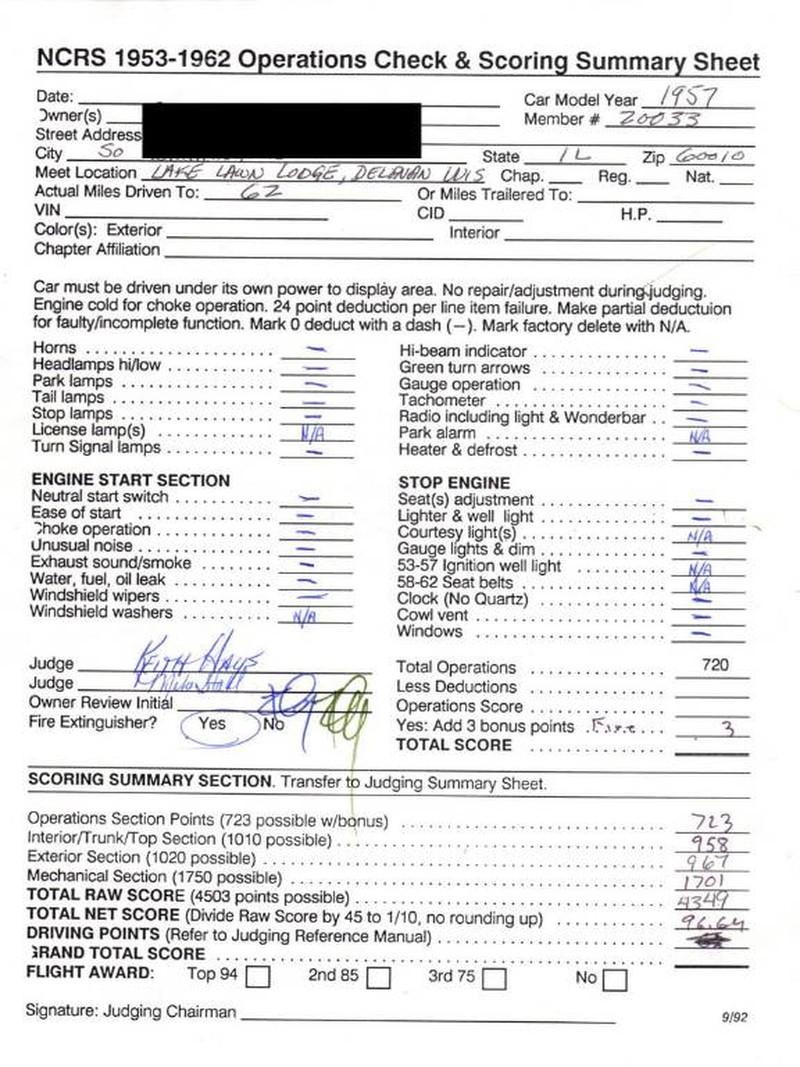 NCRS 1953-1962 Operations Check & Scoring Summary Sheet
Date:
Owner(s)
Car Model Year 1957
Member # 20033
Street Address
City So State IL Zip 60010
Meet Location LAKE LAWN LODGE, DELAVAN WIS Chap. Reg. Nat.
Actual Miles Driven To: 62 Or Miles Trailered To:
VIN CID H.P.
Color(s): Exterior Interior
Chapter Affiliation
Car must be driven under its own power to display area. No repair/adjustment during judging.
Engine cold for choke operation. 24 point deduction per line item failure. Make partial deductuion
for faulty/incomplete function. Mark 0 deduct with a dash (—). Mark factory delete with N/A.
Horns —
Headlamps hi/low —
Park lamps —
Tail lamps —
Stop lamps —
License lamp(s) N/A
Turn Signal lamps —
Hi-beam indicator —
Green turn arrows —
Gauge operation —
Tachometer —
Radio including light & Wonderbar —
Park alarm N/A
Heater & defrost —
ENGINE START SECTION
Neutral start switch —
Ease of start —
Choke operation —
Unusual noise —
Exhaust sound/smoke —
Water, fuel, oil leak —
Windshield wipers —
Windshield washers N/A
STOP ENGINE
Seat(s) adjustment —
Lighter & well light —
Courtesy light(s) N/A
Gauge lights & dim —
53-57 Ignition well light N/A
58-62 Seat belts N/A
Clock (No Quartz) —
Cowl vent —
Windows —
Judge KEITH HAYS
Judge
Owner Review Initial
Fire Extinguisher? Yes No
Total Operations 720
Less Deductions
Operations Score
Yes: Add 3 bonus points Fire 3
TOTAL SCORE
SCORING SUMMARY SECTION. Transfer to Judging Summary Sheet.
Operations Section Points (723 possible w/bonus) 723
Interior/Trunk/Top Section (1010 possible) 958
Exterior Section (1020 possible) 967
Mechanical Section (1750 possible) 1701
TOTAL RAW SCORE (4503 points possible) 4349
TOTAL NET SCORE (Divide Raw Score by 45 to 1/10, no rounding up) 96.64
DRIVING POINTS (Refer to Judging Reference Manual)
GRAND TOTAL SCORE
FLIGHT AWARD: Top 94 2nd 85 3rd 75 No
Signature: Judging Chairman
9/92